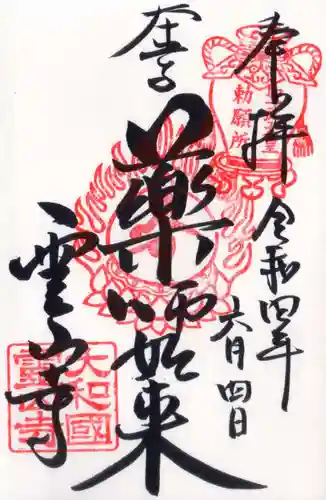 奉拝
令和四年
六月四日
薬師如来
霊山寺
勅願所
大和國
靈山寺